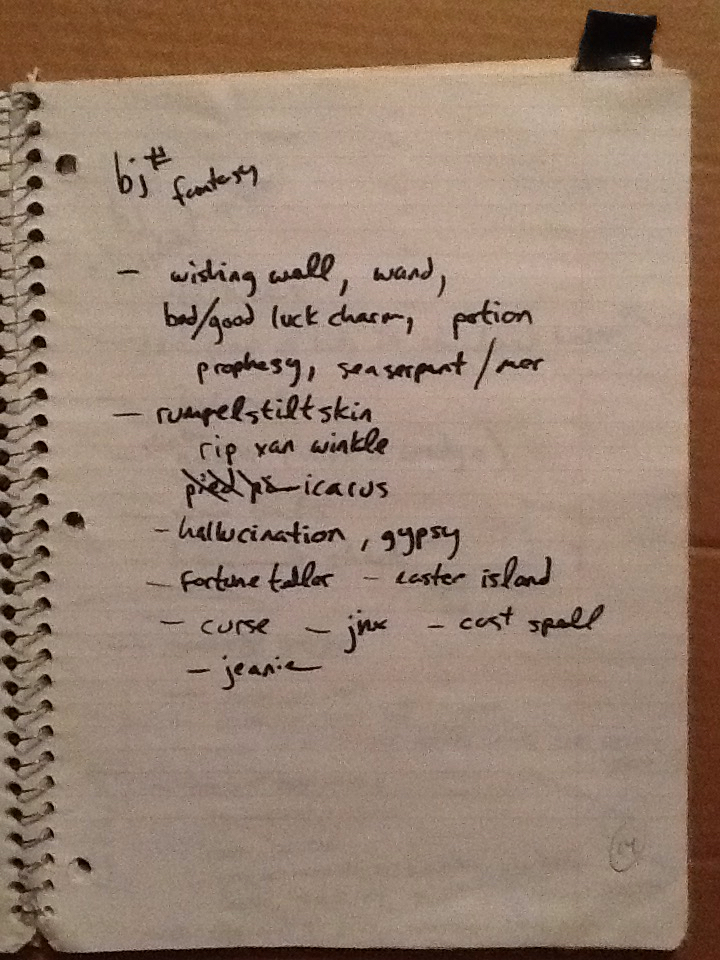 bj# fantasy
- wishing well, wand,
bad/good luck charm, potion
prophesy, seaserpent/mer
- rumpelstiltskin
rip van winkle
pied pi icarus
- hallucination, gypsy
- fortune teller - easter island
- curse - jinx - cast spell
- jeanie
14